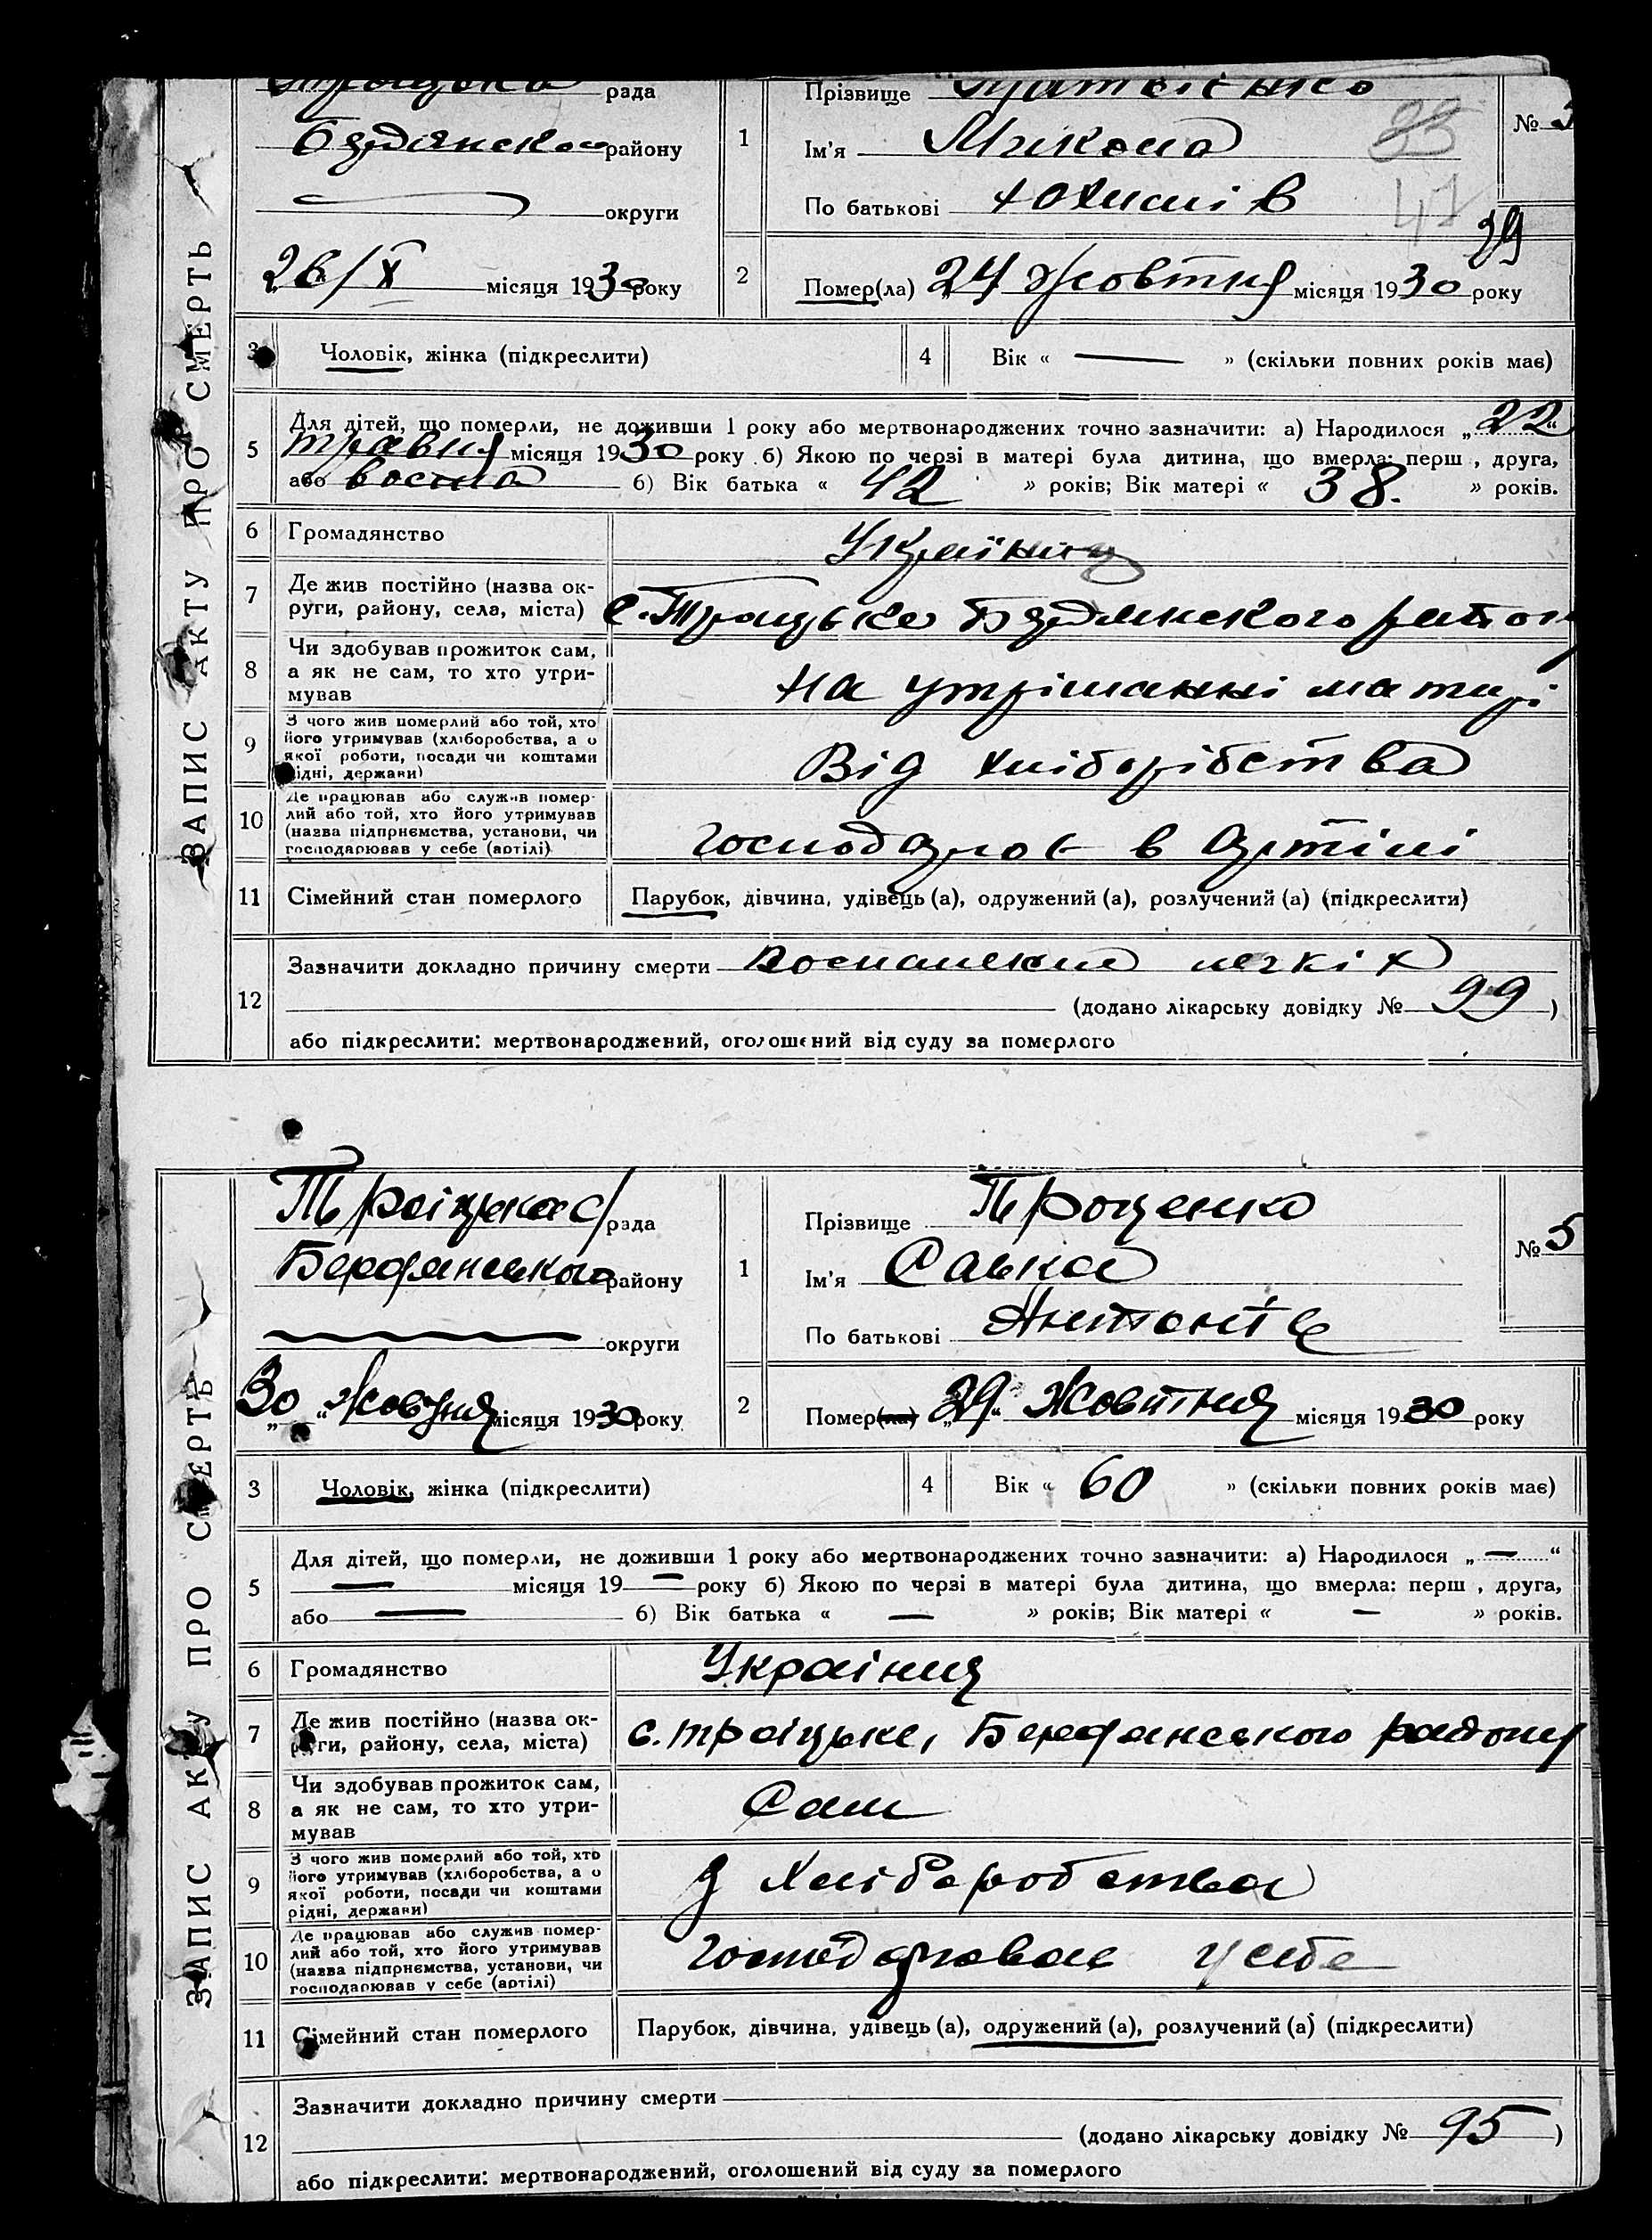 ЗАПИС АКТУ ПРО СМЕРТЬ
рада
Бердянского району
округи
26/X місяця 1930 року
1
Прізвище
Ім'я Микола
По батькові Юхимів
№ 5
35
41
39
2
Помер(ла) 24 Жовтня місяця 1930 року
3
Чоловік, жінка (підкреслити)
4
Вік « — » (скільки повних років має)
5
Для дітей, що померли, не доживши 1 року або мертвонароджених точно зазначити: а) Народилося „22“
травня місяця 1930 року б) Якою по черзі в матері була дитина, що вмерла: перш , друга,
або восма б) Вік батька « 42 » років; Вік матері « 38. » років.
6
Громадянство
Україниц
7
Де жив постійно (назва ок-
руги, району, села, міста)
с. Троцьке Бердянского району
8
Чи здобував прожиток сам,
а як не сам, то хто утри-
мував
На утріманні матирі
9
З чого жив померлий або той, хто
його утримував (хліборобства, а о
якої роботи, посади чи коштами
рідні, держави)
Від хліборібства
10
Де працював або служив помер-
лий або той, хто його утримував
(назва підприємства, установи, чи
господарював у себе (артілі)
господарює в Артілі
11
Сімейний стан померлого
Парубок, дівчина, удівець (а), одружений (а), розлучений (а) (підкреслити)
12
Зазначити докладно причину смерти Воспаление легкіх
(додано лікарську довідку № 99)
або підкреслити: мертвонароджений, оголошений від суду за померлого
ЗАПИС АКТУ ПРО СМЕРТЬ
Троіцька с/рада
Бердянського району
округи
„30“ Жовтня місяця 1930 року
1
Прізвище Троценко
Ім'я Савка
По батькові Антонів
№ 5
2
Помер(ла) „29“ Жовтня місяця 1930 року
3
Чоловік, жінка (підкреслити)
4
Вік « 60 » (скільки повних років має)
5
Для дітей, що померли, не доживши 1 року або мертвонароджених точно зазначити: а) Народилося „—“
— місяця 19 — року б) Якою по черзі в матері була дитина, що вмерла: перш , друга,
або — б) Вік батька « — » років; Вік матері « — » років.
6
Громадянство
Украінця
7
Де жив постійно (назва ок-
руги, району, села, міста)
с. Троіцьке, Бердянського району
8
Чи здобував прожиток сам,
а як не сам, то хто утри-
мував
Сам
9
З чого жив померлий або той, хто
його утримував (хліборобства, а о
якої роботи, посади чи коштами
рідні, держави)
З Хлібо робства
10
Де працював або служив помер-
лий або той, хто його утримував
(назва підприємства, установи, чи
господарював у себе (артілі)
Господарював у себе
11
Сімейний стан померлого
Парубок, дівчина, удівець (а), одружений (а), розлучений (а) (підкреслити)
12
Зазначити докладно причину смерти
(додано лікарську довідку № 95)
або підкреслити: мертвонароджений, оголошений від суду за померлого